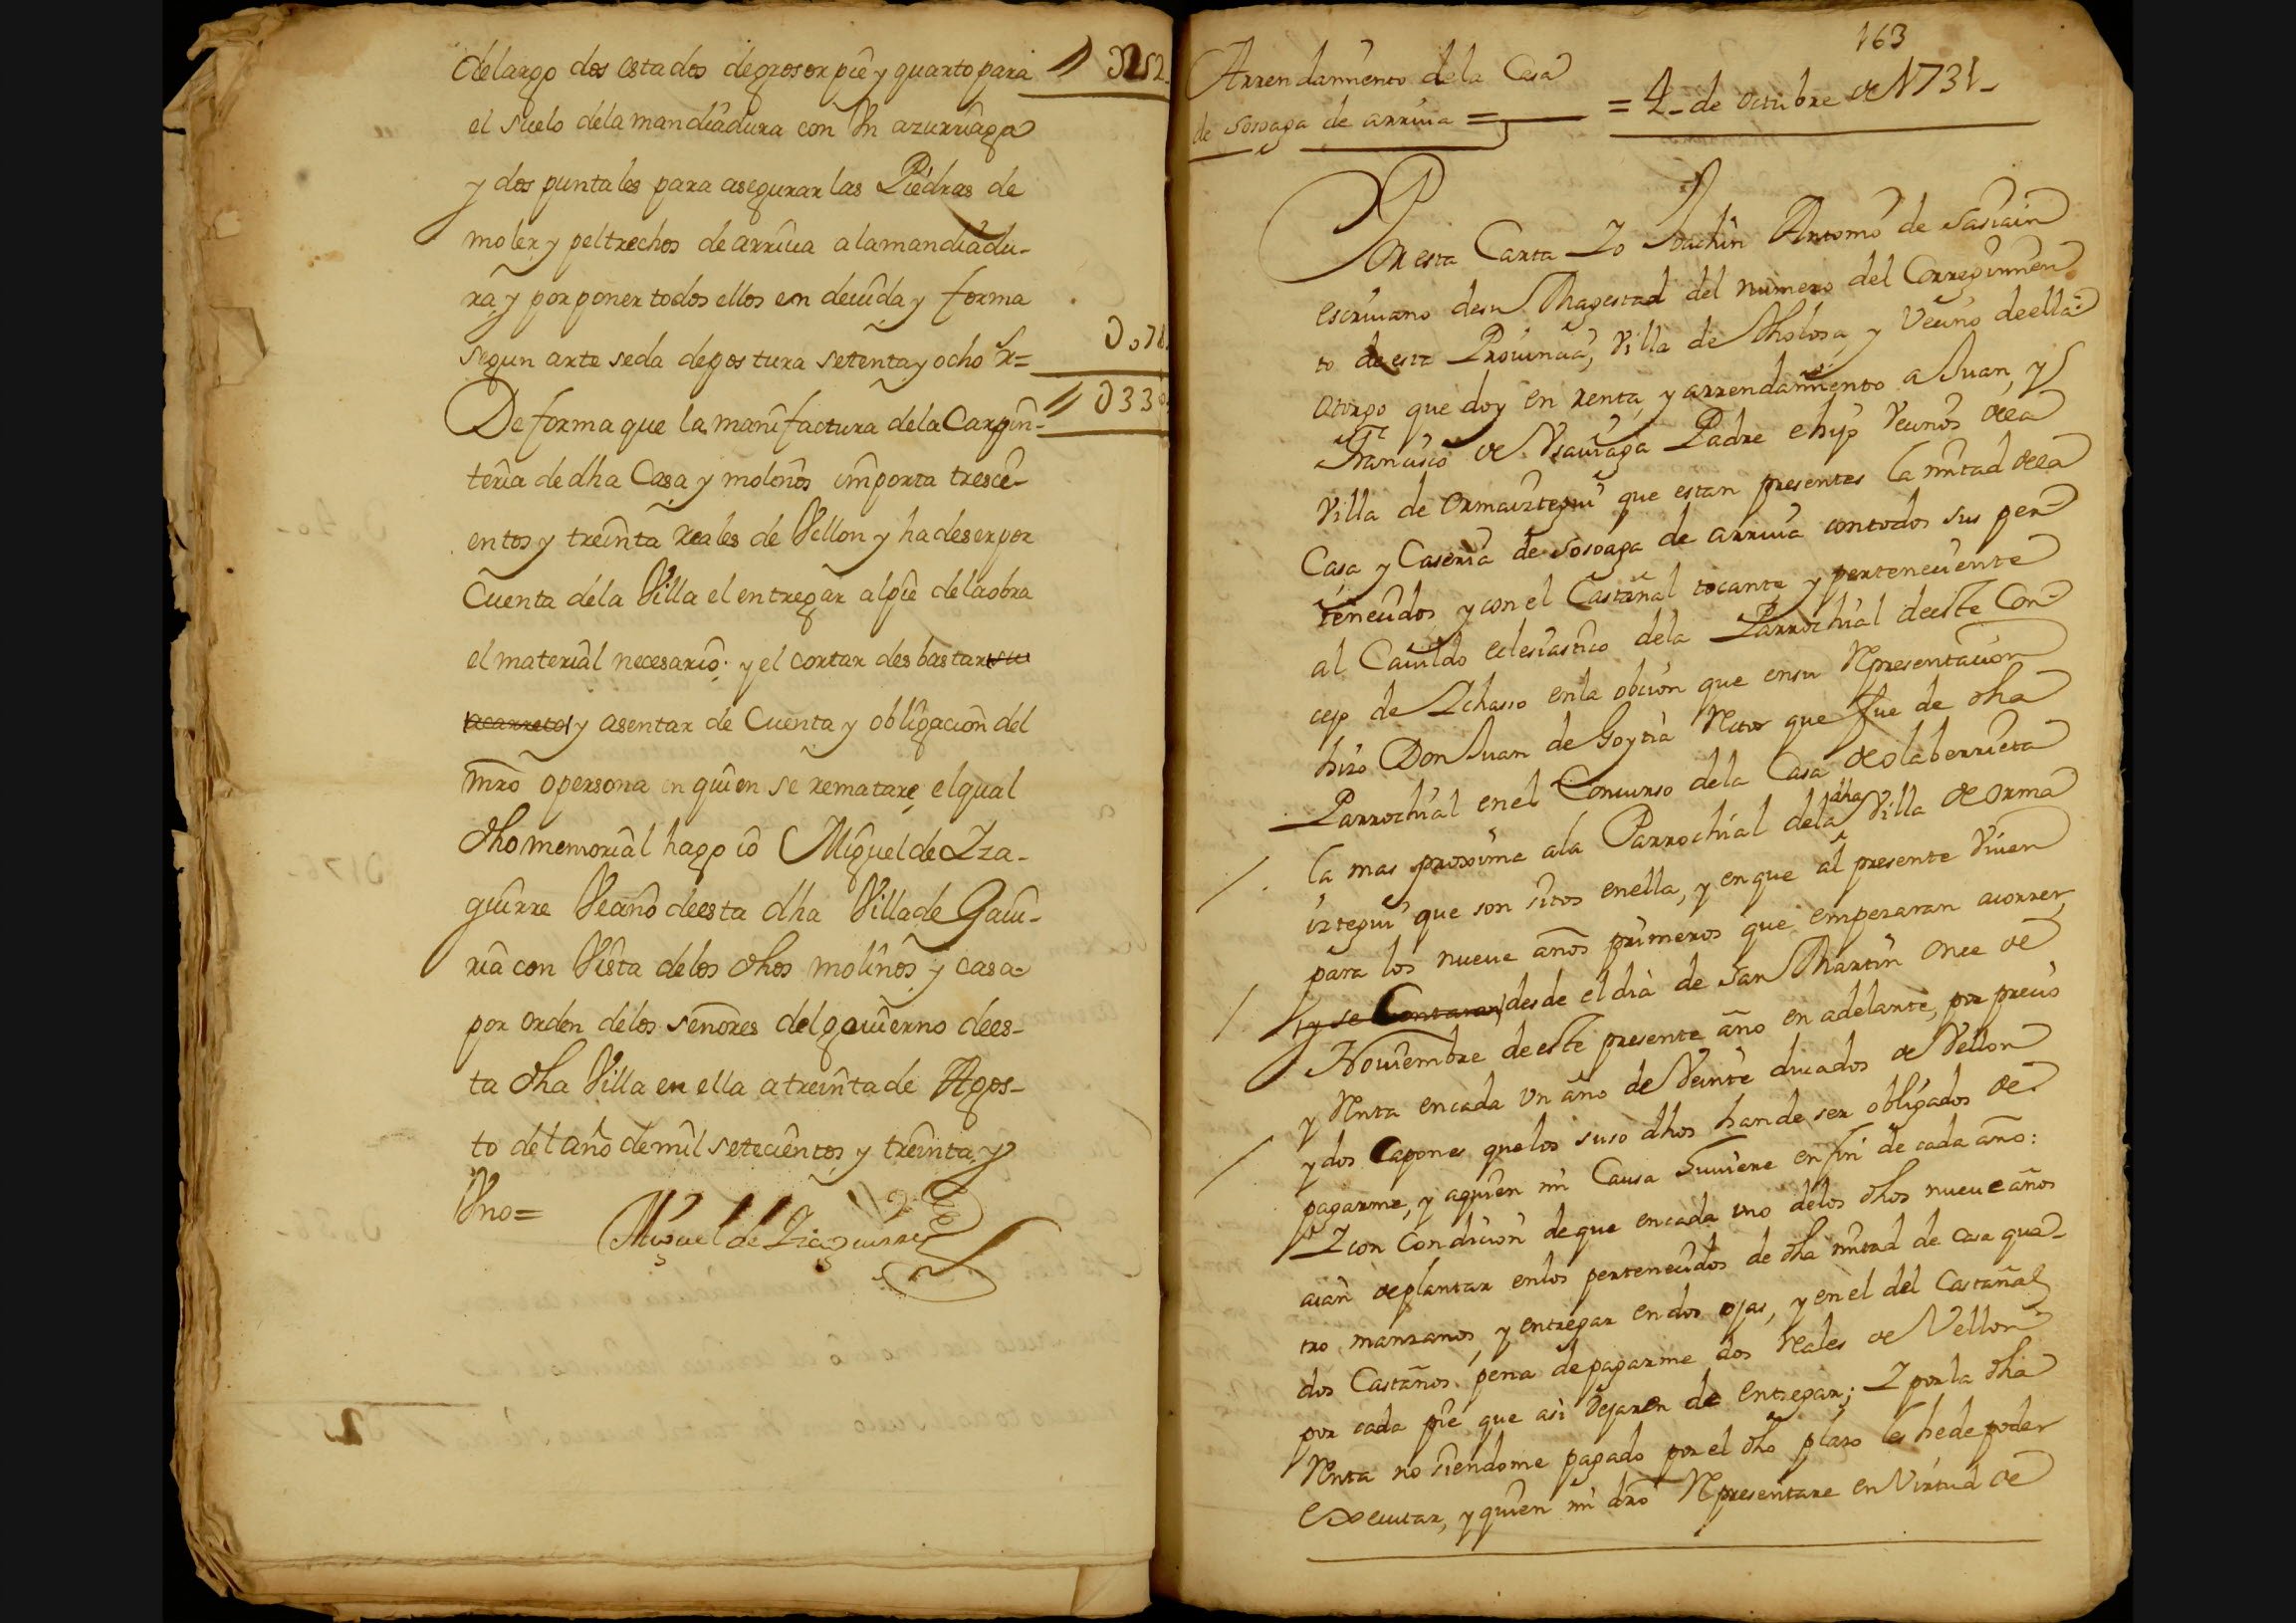 de largo dos estados de grosor pie y quarto para // D252
el suelo dela mandiadura con Vn azurriaga
y dos puntales para asegurar las Piedras de
moler y peltrechos de arriua a la mandiadu-
ra, y por poner todos ellos en deuida y forma
segun arte se da de postura setenta y ocho rs= D078
De forma que la manifactura dela Carpin- // D330
teria de dha Casa y molinos importa tresci-
entos y treinta reales de Vellon y ha de ser por
Cuenta dela Villa el entregar al pie dela obra
el material necesario; y el cortar desbastar su
acarreto y asentar de Cuenta y obligacion del
mro o persona en quien se rematare, el qual
dho memorial hago io Miguel de Yza-
guirre Vecino de esta dha Villa de Gaui-
ria con Vista de los dhos molinos y casa
por orden de los señores del gouierno de es-
ta dha Villa en ella a treinta de Agos-
to del año de mil setecientos y treinta y
Vno=
Miguel de Yzaguirre
163
Arrendamiento dela Casa
de Sosoaga de arriua =
= 4 de octubre de 1731
Por esta Carta Yo Joachin Antonio de Sasiain
escriuano de su Magestad del numero del Corregimien
to de esta Prouincia, Villa de Tholosa, y Vecino de ella:
otorgo que doy en renta, y arrendamiento a Juan, y
Francisco de Vsauiaga Padre e hijo Vecinos de la
Villa de Ormaiztegui que estan presentes la mitad de la
Casa y Caseria de Sosoaga de arriua con todos sus per
tenecidos, y con el Castañal tocante, y perteneciente
al Cauildo eclesiastico dela Parrochial de este Con
cejo de Ychasso en la obcion que en su Representacion
hizo Don Juan de Goytia Retor que fue de dha
Parrochial en el Concurso dela Casa de olaberrieta
la mas proxima a la Parrochial dela dha Villa de Orma
iztegui que son sitos en ella, y en que al presente Viuen
para los nueue años primeros que empezaran a correr,
y se Contaran desde el dia de San Martin once de
Nouiembre de este presente año en adelante, por precio
y Renta en cada Vn año de Veinte ducados de Vellon
y dos Capones que los suso dhos han de ser obligados de
pagarme, y a quien mi Causa huuiere en fin de cada año:
Y con Condicion de que en cada uno delos dhos nueue años
aian de plantar en los pertenecidos de dha mitad de casa qua-
tro manzanos, y entregar en dos ojas, y en el del Castañal
dos Castaños, pena de pagarme dos reales de Vellon
por cada pie que asi dejaren de entregar; Y por la dha
Renta no siendome pagado por el dho plazo les he de poder
executar, y quien mi dro Representare en Virtud de